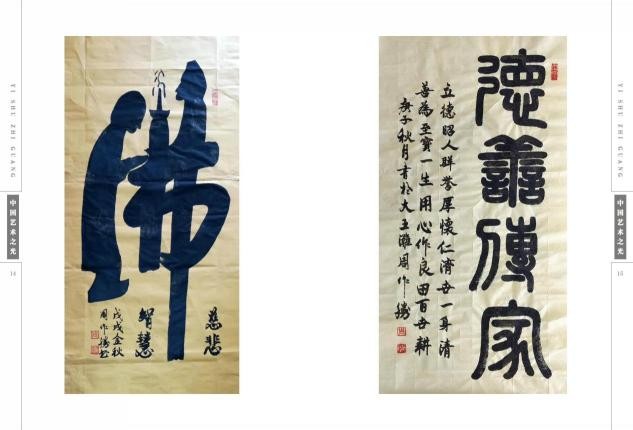 YI SHU ZHI GUANG
中国艺术之光
14
佛
慈悲
智慧
戊戌金秋
周作勝书
德善傳家
立德昭人群誉犀懷仁濟世一身清
善為至寶一生用心作良田百世耕
庚子秋月書於大王滩周作勝
YI SHU ZHI GUANG
中国艺术之光
15